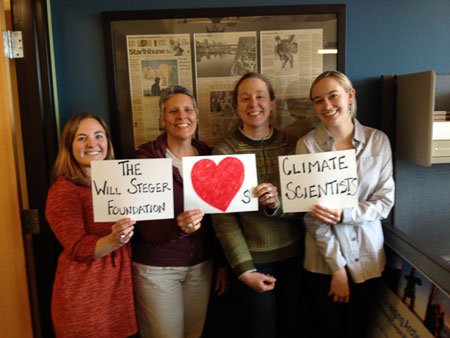 StarTribune
THE
WILL STEGER
FOUNDATION
♥S
CLIMATE
SCIENTISTS